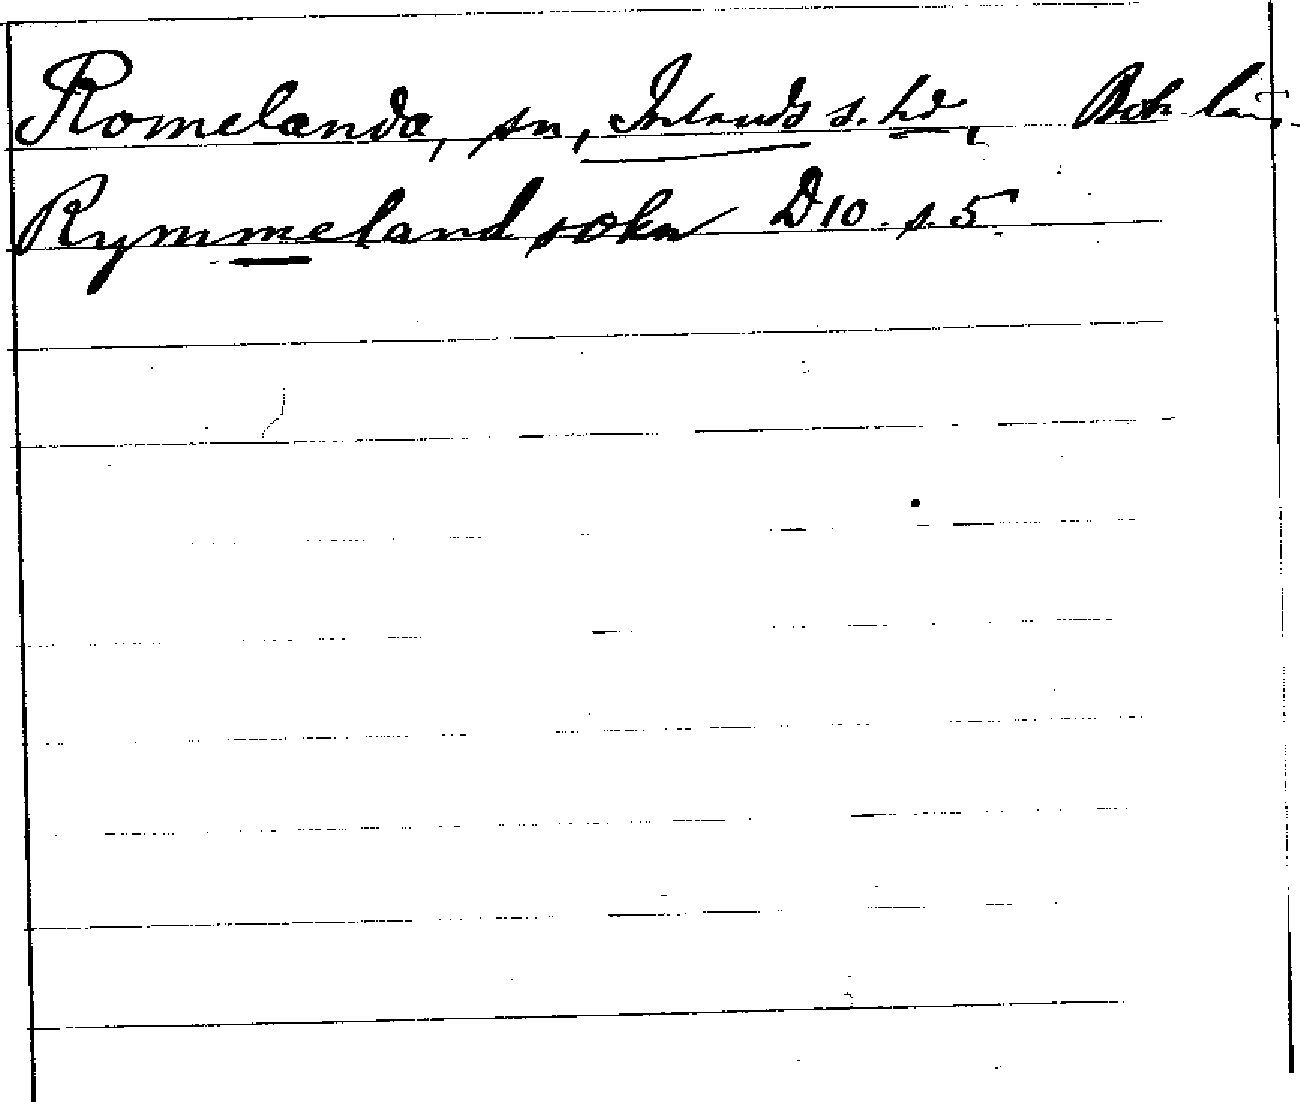 Romelanda, sn, Inlands s. hd, Boh län.
Rymmeland sokn D10. s. 5